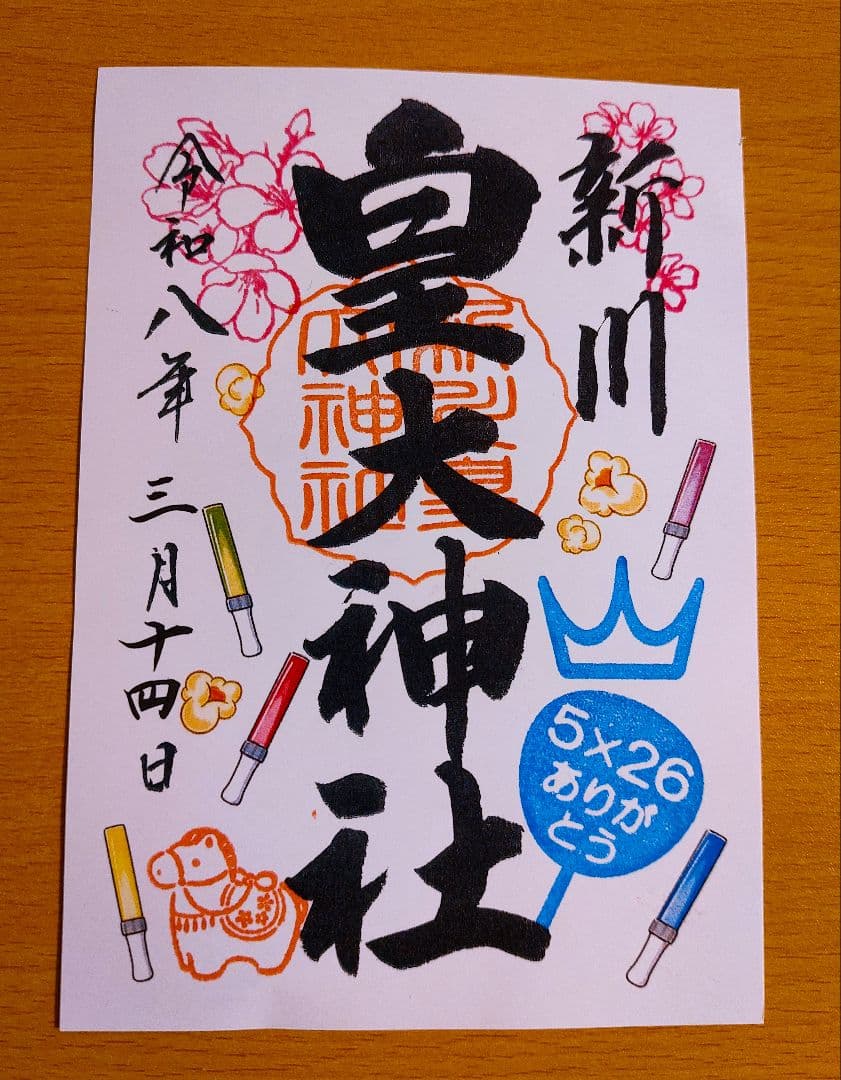 新川
皇大神社
令和八年 三月十四日
5×26
ありが
とう